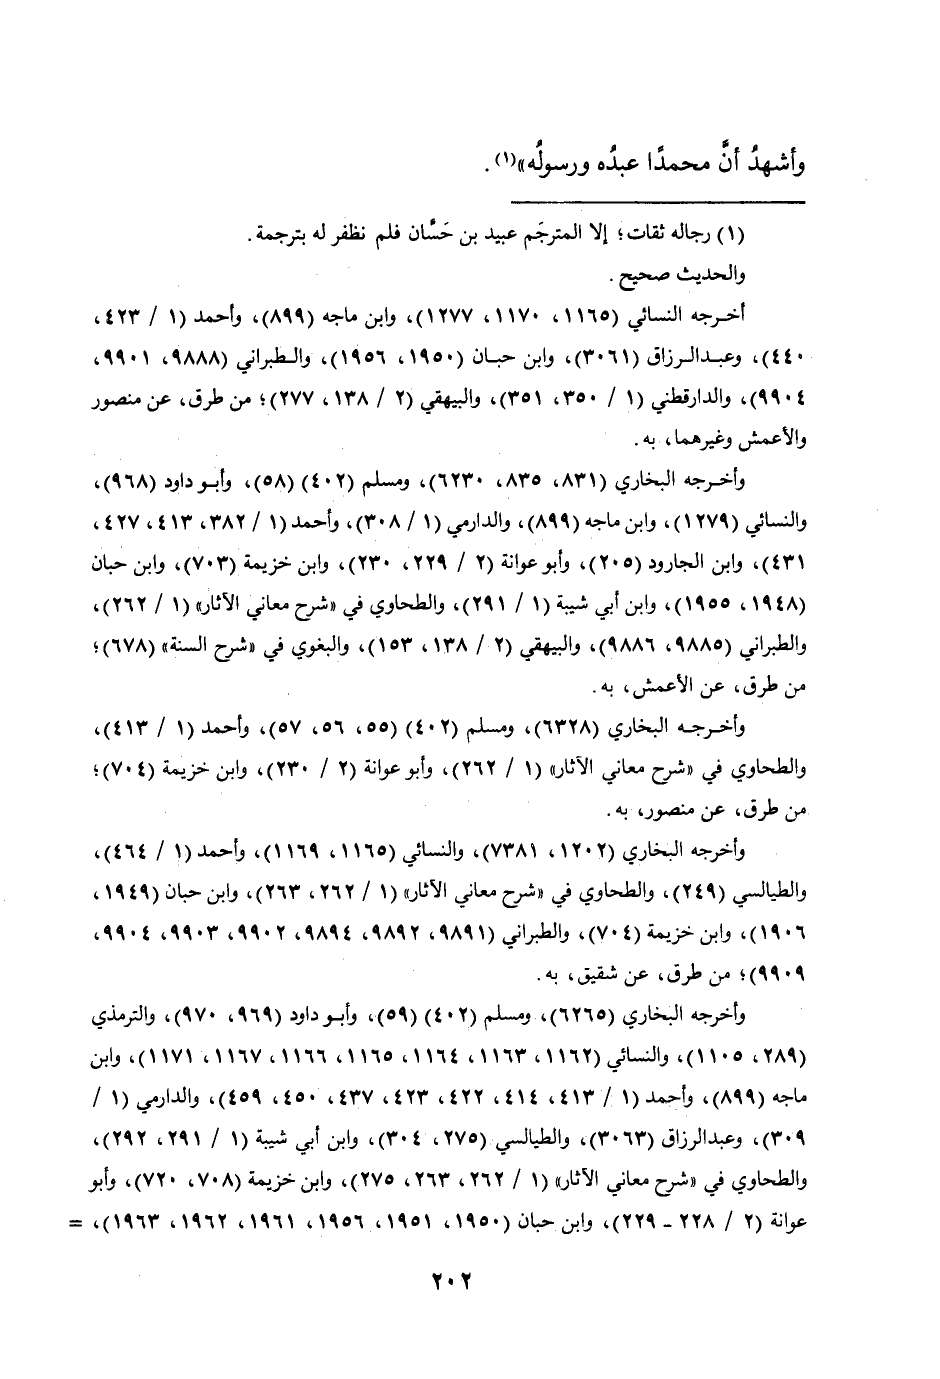 وأشهدُ أنَّ محمدًا عبدُه ورسولُه»(١).
(١) رجاله ثقات؛ إلا المترجَم عبيد بن حَسَّان فلم نظفر له بترجمة.
والحديث صحيح.
أخرجه النسائي (١١٦٥، ١١٧٠، ١٢٧٧)، وابن ماجه (٨٩٩)، وأحمد (١ / ٤٢٣،
٤٤٠)، وعبدالرزاق (٣٠٦١)، وابن حبان (١٩٥٠، ١٩٥٦)، والطبراني (٩٨٨٨، ٩٩٠١،
٩٩٠٤)، والدارقطني (١ / ٣٥٠، ٣٥١)، والبيهقي (٢ / ١٣٨، ٢٧٧)؛ من طرق، عن منصور
والأعمش وغيرهما، به.
وأخرجه البخاري (٨٣١، ٨٣٥، ٦٢٣٠)، ومسلم (٤٠٢) (٥٨)، وأبو داود (٩٦٨)،
والنسائي (١٢٧٩)، وابن ماجه (٨٩٩)، والدارمي (١ / ٣٠٨)، وأحمد (١ / ٣٨٢، ٤١٣، ٤٢٧،
٤٣١)، وابن الجارود (٢٠٥)، وأبو عوانة (٢ / ٢٢٩، ٢٣٠)، وابن خزيمة (٧٠٣)، وابن حبان
(١٩٤٨، ١٩٥٥)، وابن أبي شيبة (١ / ٢٩١)، والطحاوي في «شرح معاني الآثار» (١ / ٢٦٢)،
والطبراني (٩٨٨٥، ٩٨٨٦)، والبيهقي (٢ / ١٣٨، ١٥٣)، والبغوي في «شرح السنة» (٦٧٨)؛
من طرق، عن الأعمش، به.
وأخرجه البخاري (٦٣٢٨)، ومسلم (٤٠٢) (٥٥، ٥٦، ٥٧)، وأحمد (١ / ٤١٣)،
والطحاوي في «شرح معاني الآثار» (١ / ٢٦٢)، وأبو عوانة (٢ / ٢٣٠)، وابن خزيمة (٧٠٤)؛
من طرق، عن منصور، به.
وأخرجه البخاري (١٢٠٢، ٧٣٨١)، والنسائي (١١٦٥، ١١٦٩)، وأحمد (١ / ٤٦٤)،
والطيالسي (٢٤٩)، والطحاوي في «شرح معاني الآثار» (١ / ٢٦٢، ٢٦٣)، وابن حبان (١٩٤٩،
١٩٠٦)، وابن خزيمة (٧٠٤)، والطبراني (٩٨٩١، ٩٨٩٢، ٩٨٩٤، ٩٩٠٢، ٩٩٠٣، ٩٩٠٤،
٩٩٠٩)؛ من طرق، عن شقيق، به.
وأخرجه البخاري (٦٢٦٥)، ومسلم (٤٠٢) (٥٩)، وأبو داود (٩٦٩، ٩٧٠)، والترمذي
(٢٨٩، ١١٠٥)، والنسائي (١١٦٢، ١١٦٣، ١١٦٤، ١١٦٥، ١١٦٦، ١١٦٧، ١١٧١)، وابن
ماجه (٨٩٩)، وأحمد (١ / ٤١٣، ٤١٤، ٤٢٢، ٤٢٣، ٤٣٧، ٤٥٠، ٤٥٩)، والدارمي (١ /
٣٠٩)، وعبدالرزاق (٣٠٦٣)، والطيالسي (٢٧٥، ٣٠٤)، وابن أبي شيبة (١ / ٢٩١، ٢٩٢)،
والطحاوي في «شرح معاني الآثار» (١ / ٢٦٢، ٢٦٣، ٢٧٥)، وابن خزيمة (٧٠٨، ٧٢٠)، وأبو
عوانة (٢ / ٢٢٨ - ٢٢٩)، وابن حبان (١٩٥٠، ١٩٥١، ١٩٥٦، ١٩٦١، ١٩٦٢، ١٩٦٣)، =
٢٠٢